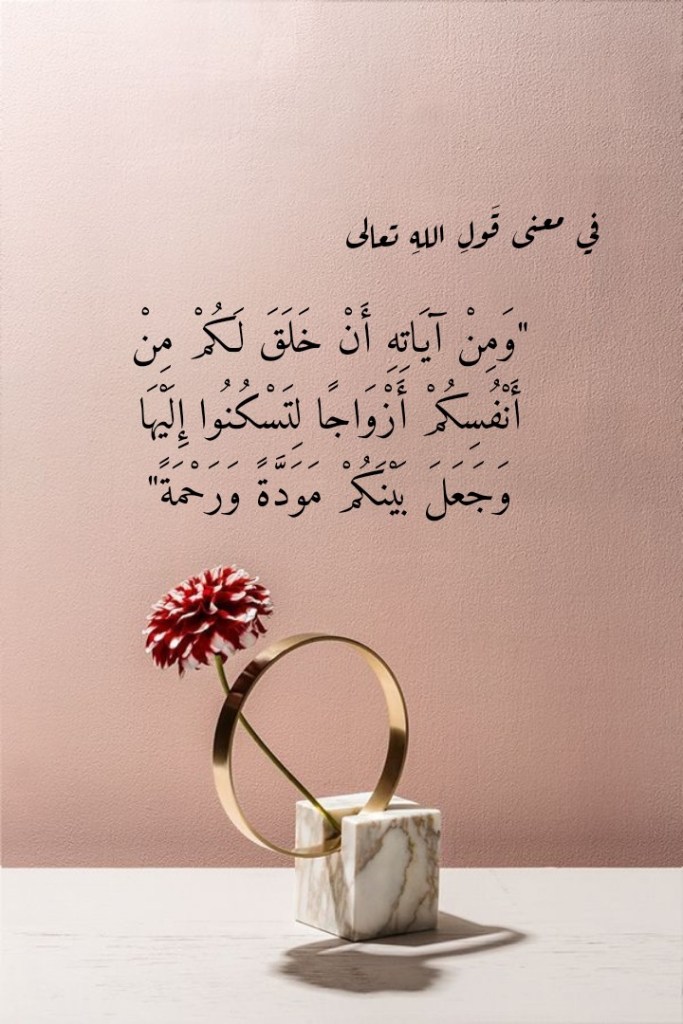 في معنى قَولِ اللهِ تعالى
"وَمِنْ آيَاتِهِ أَنْ خَلَقَ لَكُمْ مِنْ
أَنْفُسِكُمْ أَزْوَاجًا لِتَسْكُنُوا إِلَيْهَا
وَجَعَلَ بَيْنَكُمْ مَوَدَّةً وَرَحْمَةً"